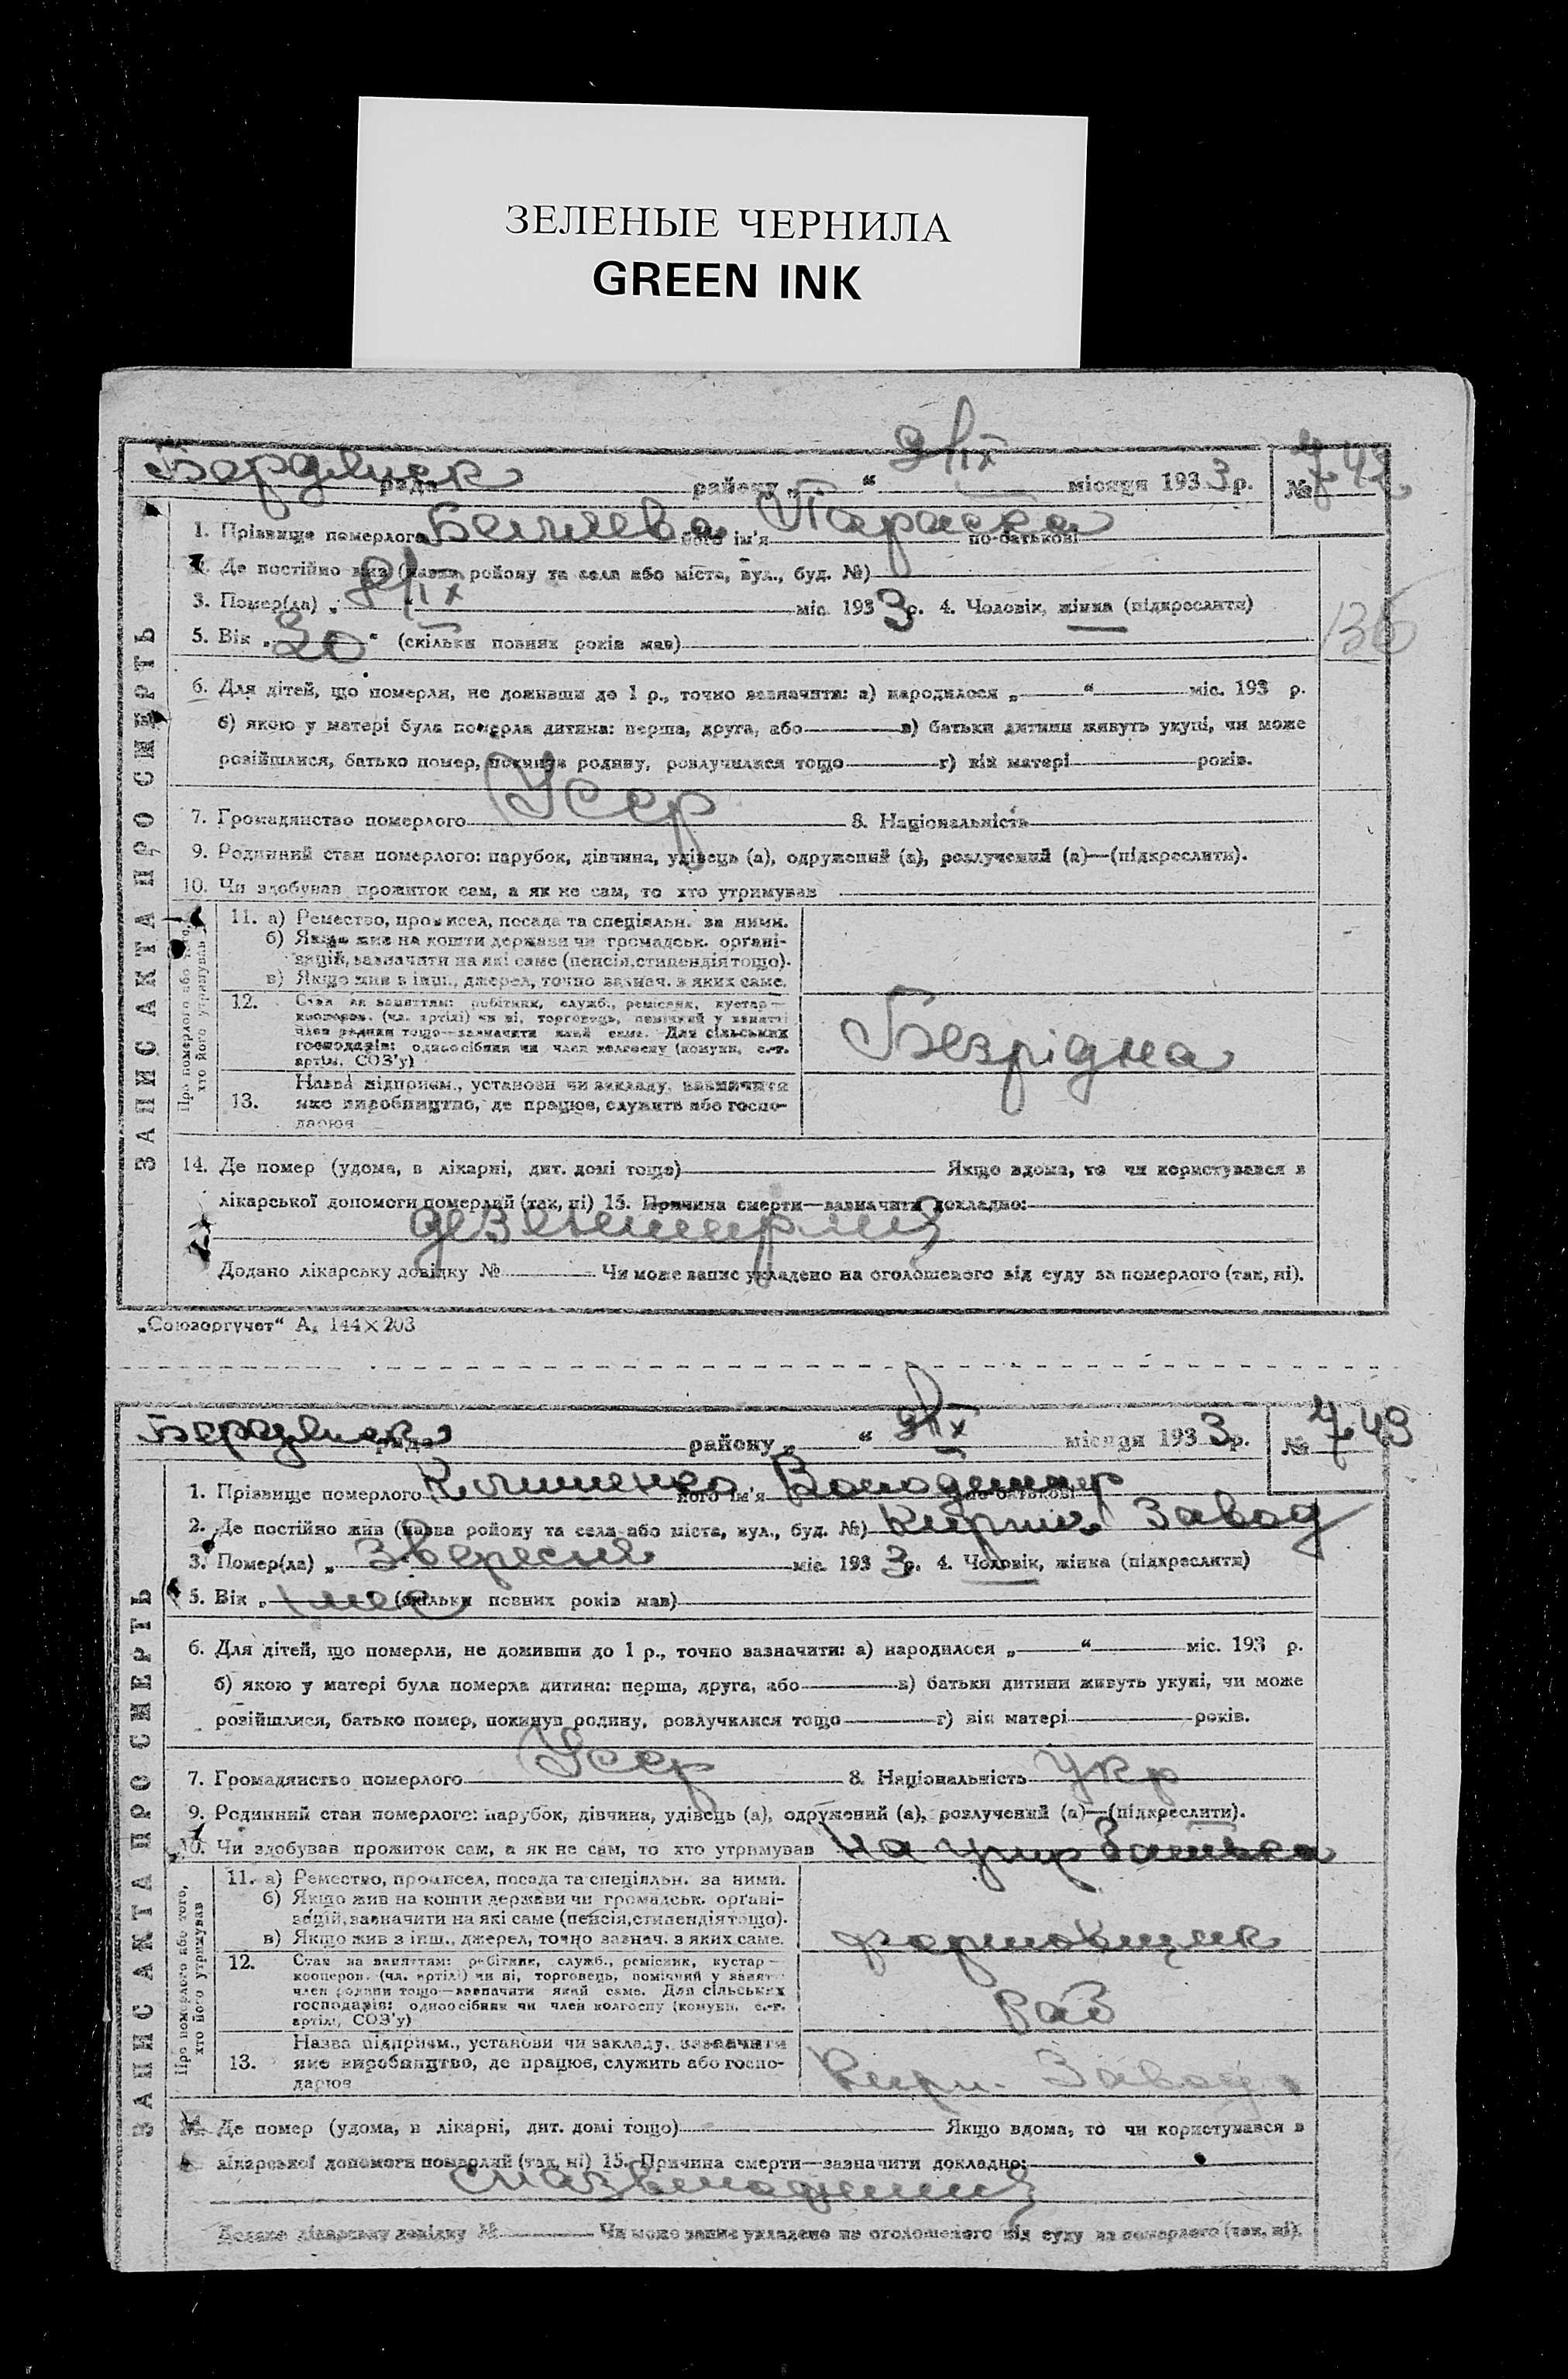 ЗЕЛЕНЫЕ ЧЕРНИЛА
GREEN INK
ЗАПИС АКТА ПРО СМЕРТЬ
Бердянск рада району „ “ 2/IX місяця 1933 р. № 742
1. Прізвище померлого його ім'я Параска по-батькові
2. Де постійно жив (назва району та села або міста, вул., буд. №)
3. Помер(ла) „ 2/IX міс. 1933 р. 4. Чоловік, жінка (підкреслити)
5. Вік „ “ (скільки повних років мав)
136
6. Для дітей, що померли, не доживши до 1 р., точно зазначити: а) народилося „ “ міс. 193 р.
б) якою у матері була померла дитина: перша, друга, або в) батьки дитини живуть укупі, чи може
розійшлися, батько помер, покинув родину, розлучилися тощо г) вік матері років.
7. Громадянство померлого Усср 8. Національність
9. Родинний стан померлого: парубок, дівчина, удівець (а), одружений (а), розлучений (а)—(підкреслити).
10. Чи здобував прожиток сам, а як не сам, то хто утримував
Про померлого або того, хто його утримував
11. а) Ремество, промисел, посада та спеціяльн. за ними.
б) Якщо жив на кошти держави чи громадськ. орґані-
зацій, зазначити на які саме (пенсія, стипендія тощо).
в) Якщо жив з інш., джерел, точно зазнач. з яких саме.
12. Стан за заняттям: робітник, служб., ремісник, кустар—
кооперов. (чл. артілі) чи ні, торговець, помічний у занятті
член родини тощо—зазначити який саме. Для сільських
господарів: одноосібник чи член колгоспу (комуни, с.-г.
артіл, СОЗ'у)
Безрідна
13. Назва підприєм., установи чи закладу, зазначити
яке виробництво, де працює, служить або госпо-
дарює
14. Де помер (удома, в лікарні, дит. домі тощо) Якщо вдома, то чи користувався з
лікарської допомоги померлий (так, ні) 15. Причина смерти—зазначити докладно:
дезентерия
Додано лікарську довідку № Чи може запис укладено на оголошеного від суду за померлого (так, ні).
„Союзоргучет“ А, 144×203
ЗАПИС АКТА ПРО СМЕРТЬ
Бердянск рада району „ “ 2/IX місяця 1933 р. № 743
1. Прізвище померлого його ім'я Володимир по-батькові
2. Де постійно жив (назва району та села або міста, вул., буд. №) Кирпич Завод
3. Помер(ла) „ Вересня міс. 1933 р. 4. Чоловік, жінка (підкреслити)
5. Вік „ 1 мес (скільки повних років мав)
6. Для дітей, що померли, не доживши до 1 р., точно зазначити: а) народилося „ “ міс. 193 р.
б) якою у матері була померла дитина: перша, друга, або в) батьки дитини живуть укупі, чи може
розійшлися, батько помер, покинув родину, розлучилися тощо г) вік матері років.
7. Громадянство померлого Усср 8. Національність Укр
9. Родинний стан померлого: парубок, дівчина, удівець (а), одружений (а), розлучений (а)—(підкреслити).
10. Чи здобував прожиток сам, а як не сам, то хто утримував На утр батька
Про померлого або того, хто його утримував
11. а) Ремество, промисел, посада та спеціяльн. за ними.
б) Якщо жив на кошти держави чи громадськ. орґані-
зацій, зазначити на які саме (пенсія, стипендія тощо).
в) Якщо жив з інш., джерел, точно зазнач. з яких саме.
формовщик
12. Стан за заняттям: робітник, служб., ремісник, кустар—
кооперов. (чл. артілі) чи ні, торговець, помічний у занятті
член родини тощо—зазначити який саме. Для сільських
господарів: одноосібник чи член колгоспу (комуни, с.-г.
артіл, СОЗ'у)
Раб
13. Назва підприєм., установи чи закладу, зазначити
яке виробництво, де працює, служить або госпо-
дарює
Кирп. Завод
14. Де помер (удома, в лікарні, дит. домі тощо) Якщо вдома, то чи користувався з
лікарської допомоги померлий (так, ні) 15. Причина смерти—зазначити докладно:
Додано лікарську довідку № Чи може запис укладено на оголошеного від суду за померлого (так, ні).